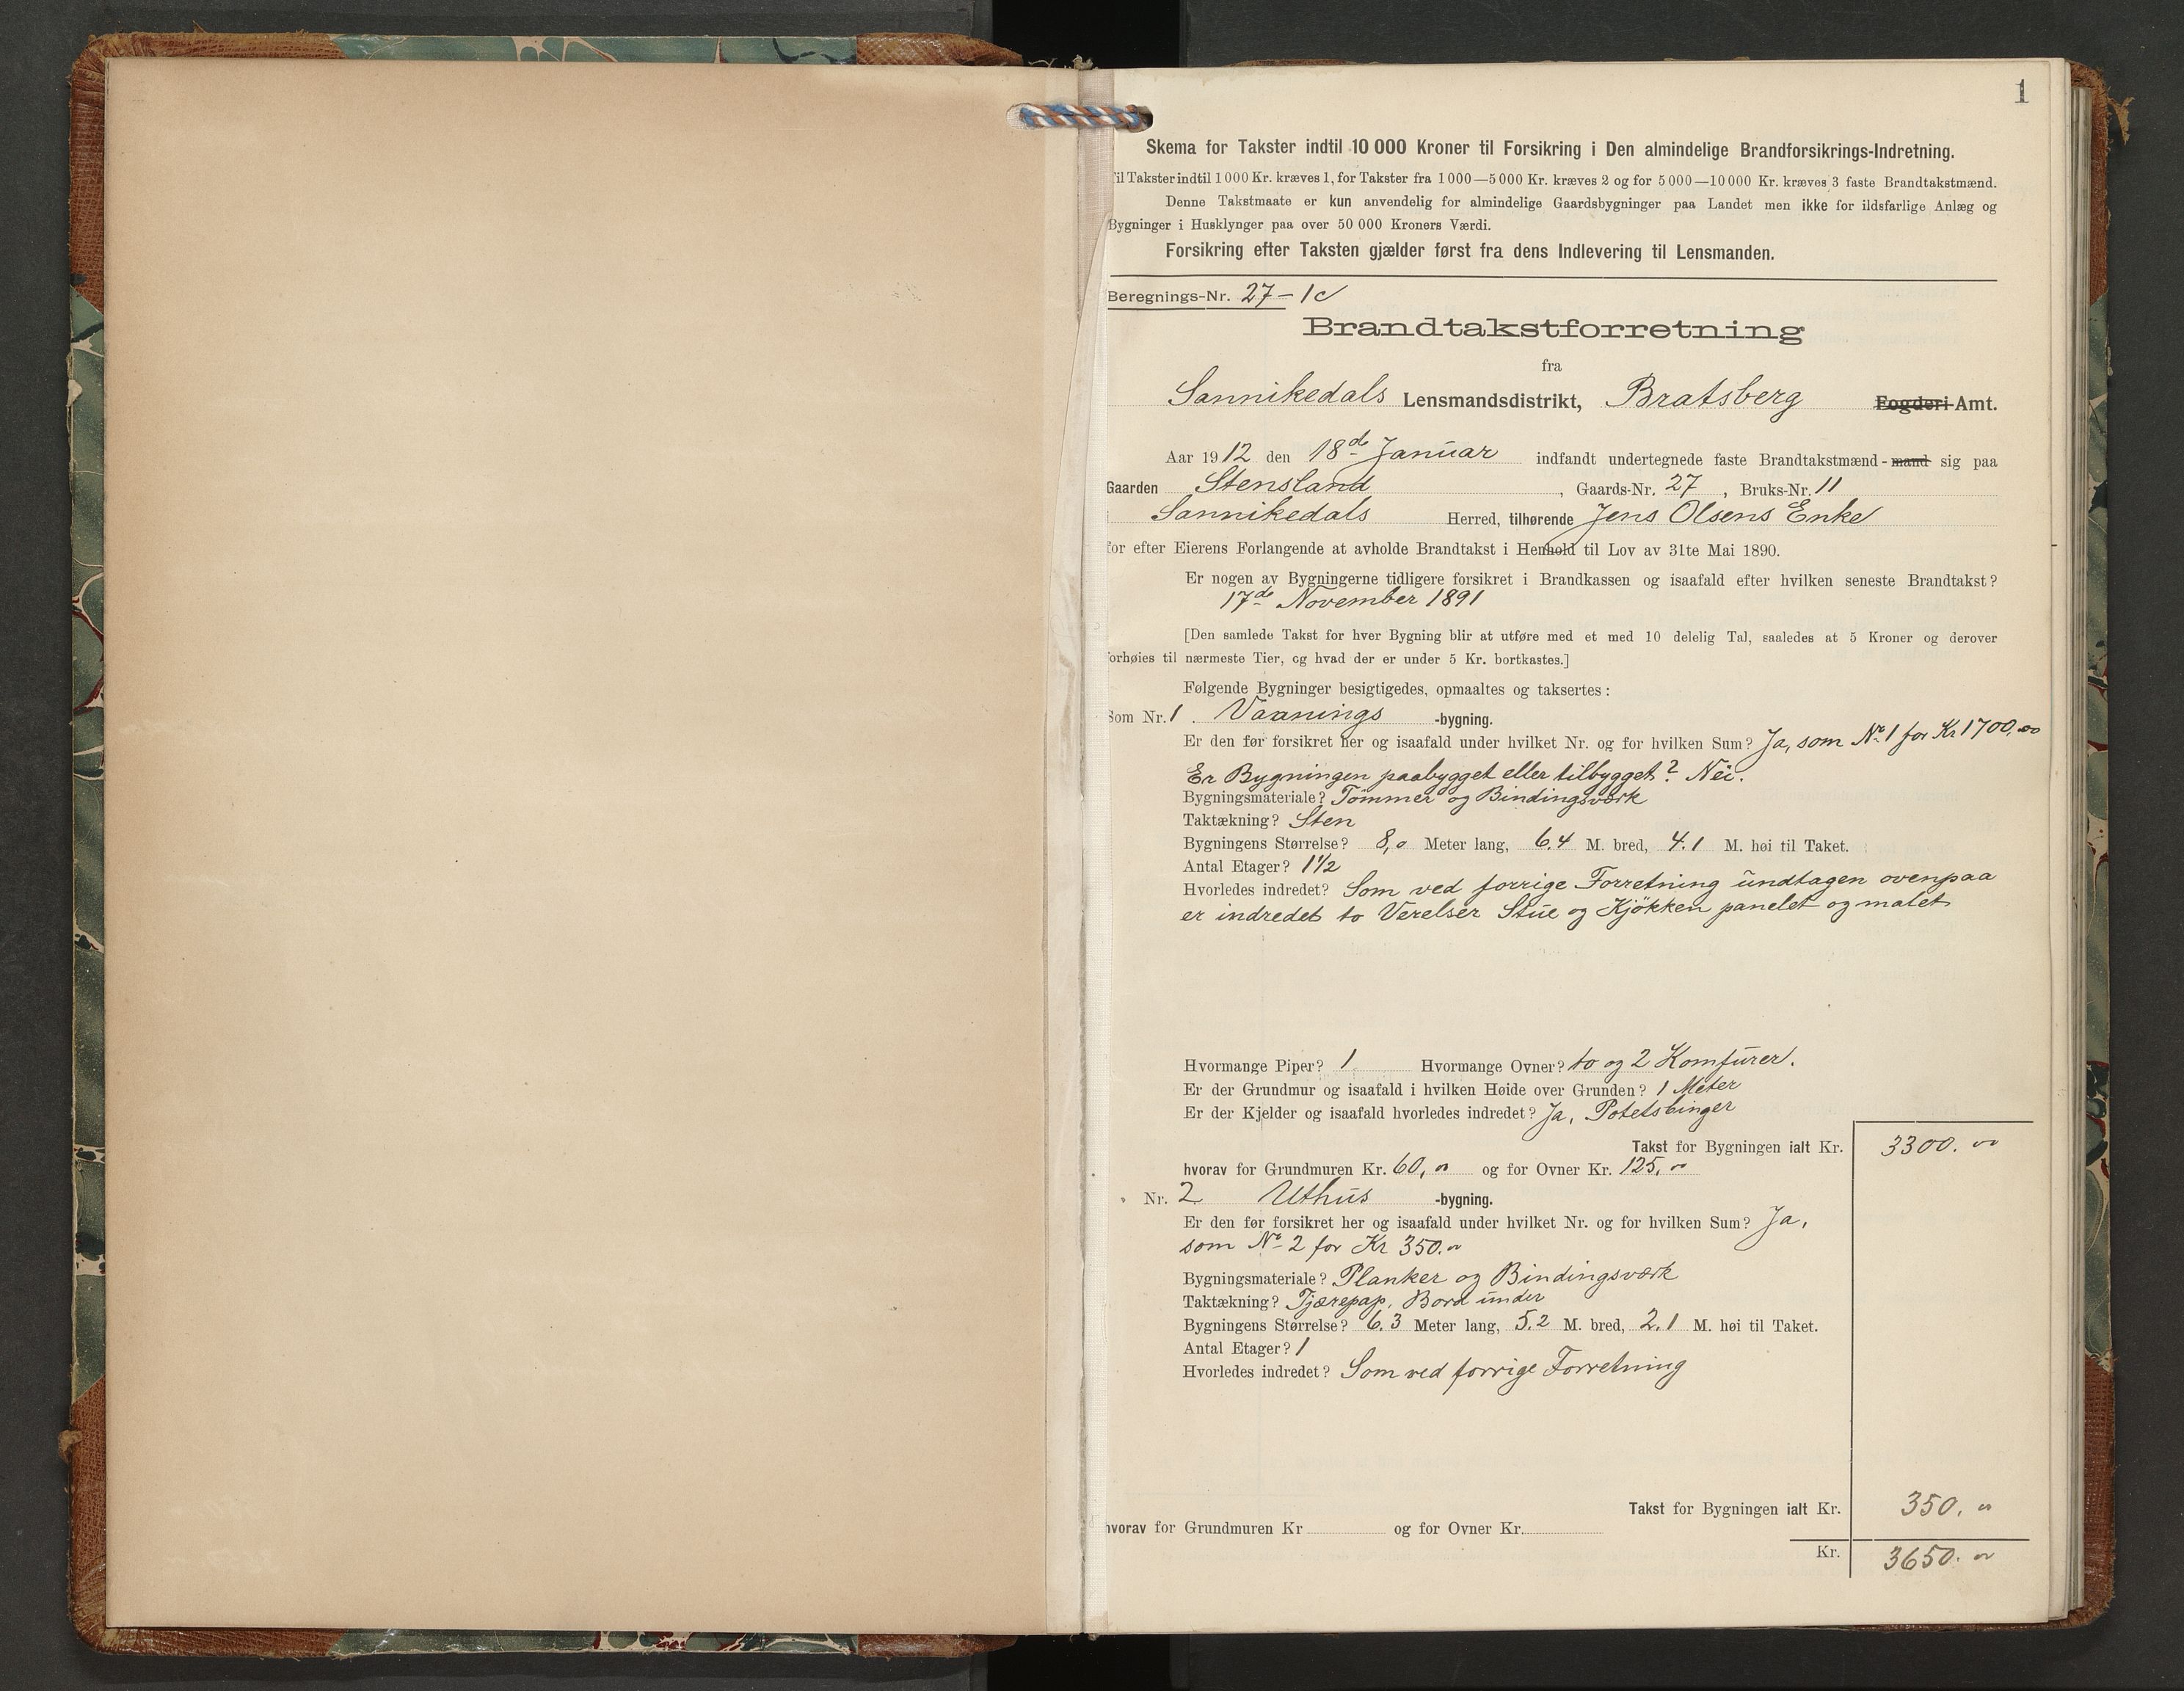 1
Skema for Takster indtil 10 000 Kroner til Forsikring i Den almindelige Brandforsikrings-Indretning.
Til Takster indtil 1000 Kr. kræves 1, for Takster fra 1000—5000 Kr. kræves 2 og for 5000—10000 Kr. kræves 3 faste Brandtakstmænd.
Denne Takstmaate er kun anvendelig for almindelige Gaardsbygninger paa Landet men ikke for ildsfarlige Anlæg og
Bygninger i Husklynger paa over 50 000 Kroners Værdi.
Forsikring efter Taksten gjælder først fra dens Indlevering til Lensmanden.
Beregnings-Nr. 27-1c
Brandtakstforretning
fra
Sannikedals Lensmandsdistrikt, Bratsberg Fogderi-Amt.
Aar 1912 den 18de Januar indfandt undertegnede faste Brandtakstmænd-mand sig paa
Gaarden Stensland, Gaards-Nr. 27, Bruks-Nr. 11
Sannikedals Herred, tilhørende Jens Olsens Enke
for efter Eierens Forlangende at avholde Brandtakst i Henhold til Lov av 31te Mai 1890.
Er nogen av Bygningerne tidligere forsikret i Brandkassen og isaafald efter hvilken seneste Brandtakst?
17de November 1891
[Den samlede Takst for hver Bygning blir at utføre med et med 10 delelig Tal, saaledes at 5 Kroner og derover
forhøies til nærmeste Tier, og hvad der er under 5 Kr. bortkastes.]
Følgende Bygninger besigtigedes, opmaaltes og taksertes:
Som Nr. 1. Vaanings -bygning.
Er den før forsikret her og isaafald under hvilket Nr. og for hvilken Sum? Ja, som No 1 for Kr 1700,00
Er Bygningen paabygget eller tilbygget? Nei.
Bygningsmateriale? Tømmer og Bindingsværk
Taktækning? Sten
Bygningens Størrelse? 8,0 Meter lang, 6.4 M. bred, 4.1 M. høi til Taket.
Antal Etager? 1 1/2
Hvorledes indredet? Som ved forrige Forretning undtagen ovenpaa
er indredet to Verelser Stue og Kjøkken panelet og malet
Hvormange Piper? 1 Hvormange Ovner? to og 2 Komfurer.
Er der Grundmur og isaafald i hvilken Høide over Grunden? 1 Meter
Er der Kjelder og isaafald hvorledes indredet? Ja, Potetsbinger
Takst for Bygningen ialt Kr. 3300.00
hvorav for Grundmuren Kr. 60,00 og for Ovner Kr. 125,00
" Nr. 2 Uthus -bygning.
Er den før forsikret her og isaafald under hvilket Nr. og for hvilken Sum? Ja,
som No 2 for Kr 350.00
Bygningsmateriale? Planker og Bindingsværk
Taktækning? Tjærepap, Bord under
Bygningens Størrelse? 6.3 Meter lang, 5.2 M. bred, 2.1 M. høi til Taket.
Antal Etager? 1
Hvorledes indredet? Som ved forrige Forretning
Takst for Bygningen ialt Kr. 350.00
hvorav for Grundmuren Kr og for Ovner Kr.
Kr. 3650.00